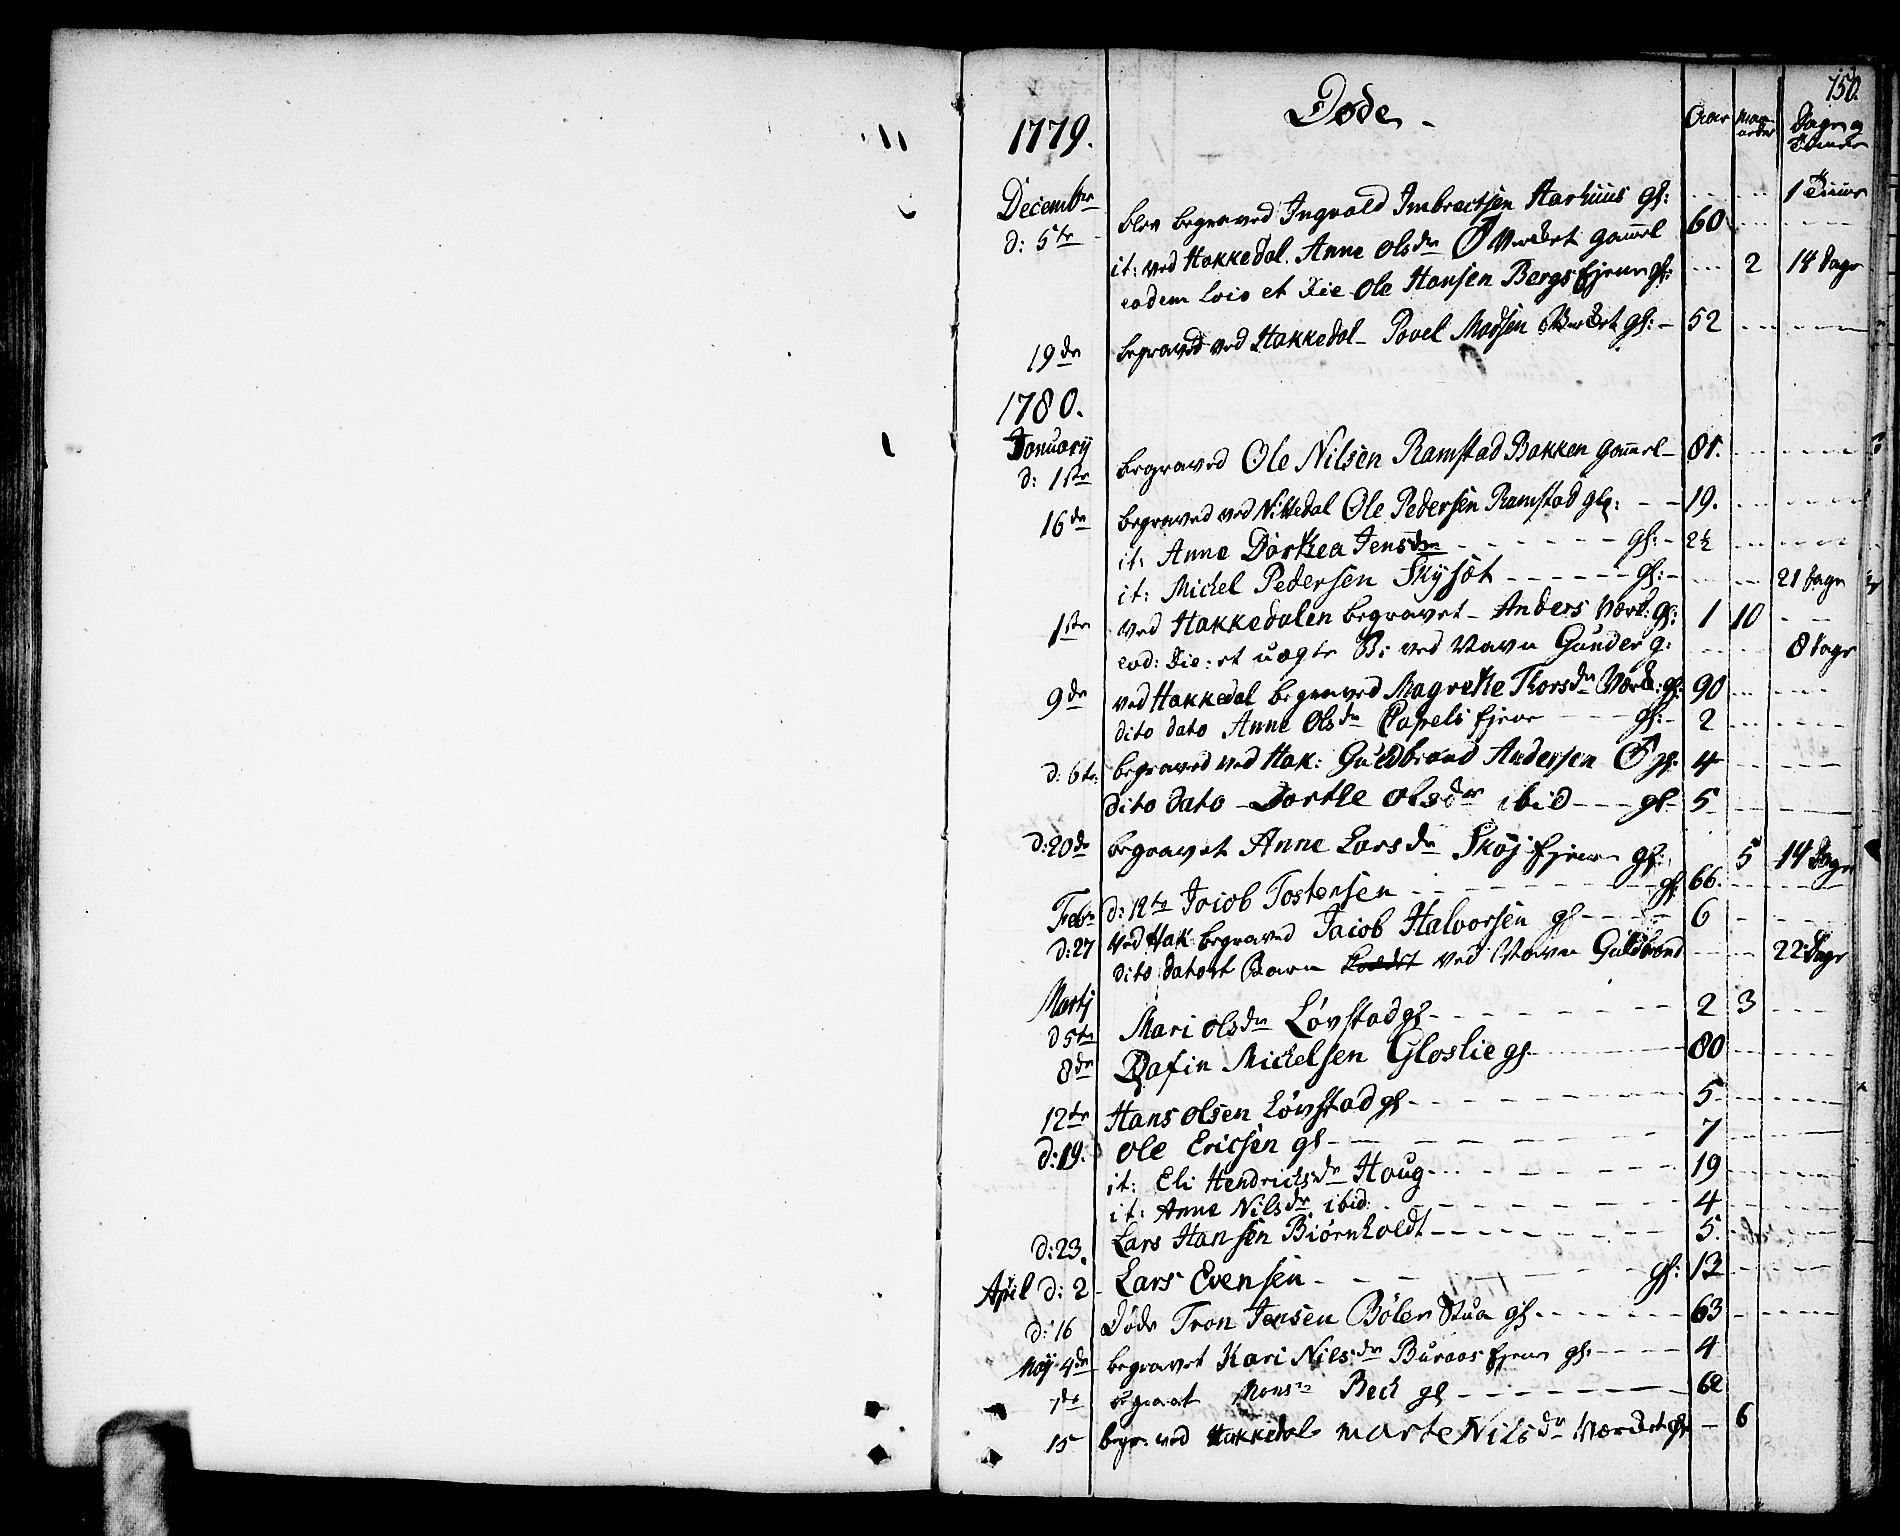 150.
Døde
1779.
Aar Maaneder Dage og Timer
December
d: 5te blev begraved Ingvald Imbrectsen Aarhuus gl: 1 Time
it: ved Hakkedal Anne Olsdr Værket gammel 60
eodem loco et Die Ole Hansen Bergs Ejene gl: 2 14 dage
19de begraved ved Hakkedal Povel Madsen Værket gl: 52
1780.
Januarij
d: 1ste begraved Ole Nilsen Ramstad Bakken gammel 81.
16de begraved ved Nittedal Ole Pedersen Ramstad gl: 19.
it: Anne Dorthea Jensdr gl: 2½
it: Michel Pedersen Skysøt gl: 21 dage
1ste ved Hakkedalen begravet Anders Værk: gl: 1 10
eod: Die: et uægte B: ved Navn Gunder g: 8 dage
9de ved Hakkedal begraved Magrethe Thorsdr Værk: gl: 90
dito dato Anne Olsdr Capels Ejene gl: 2
d: 6te begraved ved Hak: Guldbrand Andersen ♂ gl: 4
dito dato Dorthe Olsdr ibid gl 5
d: 20de begravet Anne Larsdr Skøj Ejene gl: 5 14 Dage
Febr. d: 12te Jacob Tostensen gl 66.
d: 27 ved Hak: begraved Jacob Halvorsen gl 6
dito dato et Barn ved Navn Guldbrand 22 dage
Martj
d 5te Mari Olsdr Løvstad gl 2 3
8de Dafin Michelsen Gloslie gl 80
12te Hans Olsen Løvstad gl 5
d: 19. Ole Ericsen gl 7
it: Eli Hendricksdr Houg 19
it: Anne Nilsdr ibid: 4
d: 23. Lars Hansen Biørnholdt 5.
April d: 2 Lars Evensen gl: 12
d: 16 Døde Tron Jensen Bøler Stua gl 63
Maj 4de begravet Kari Nilsdr Buraas Ejene gl: 4
7de begravet Monsr Beck gl 62
15 begr: ved Hakkedal Marte Nilsdr Værket gl 6